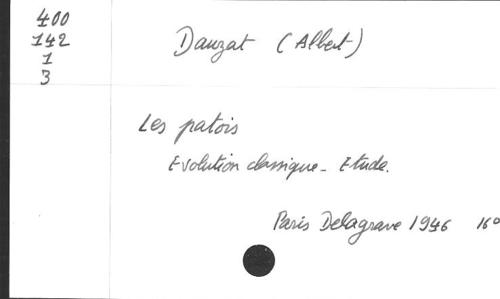 400
142
1
3
Dauzat (Albert)
Les patois
Evolution classique - Etude.
Paris Delagrave 1946 16°